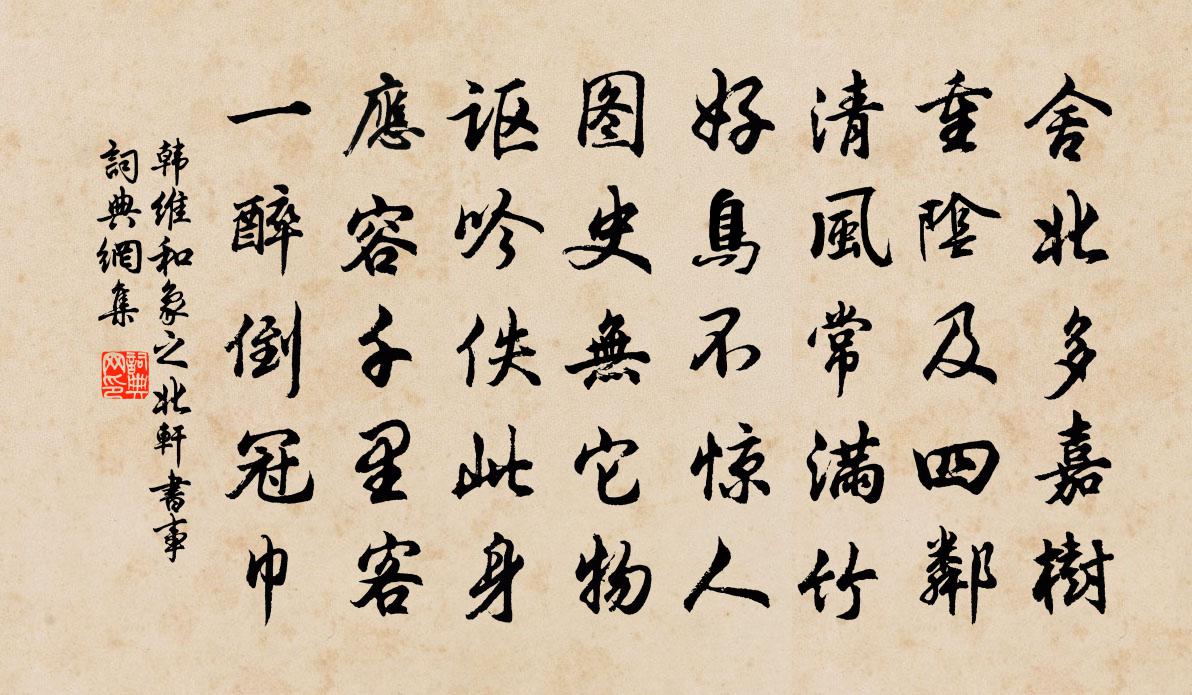 舍北多嘉樹
重陰及四鄰
清風常滿竹
好鳥不惊人
图史無它物
讴吟佚此身
應容千里客
一醉倒冠巾
韩維和象之北軒書事
詞典網集
詞典网印